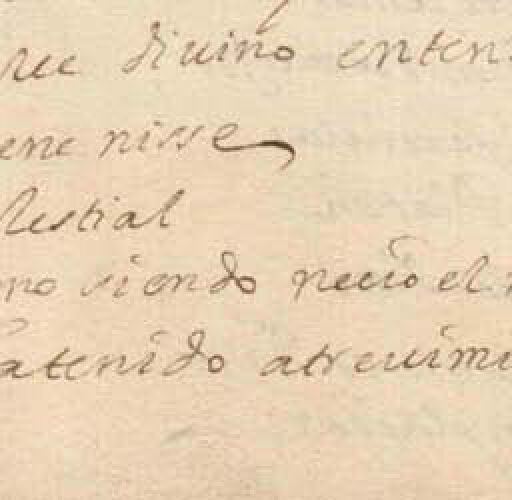 rec diuino enten
ene nisse
lestial
no siendo necio el
atenido atreuimi